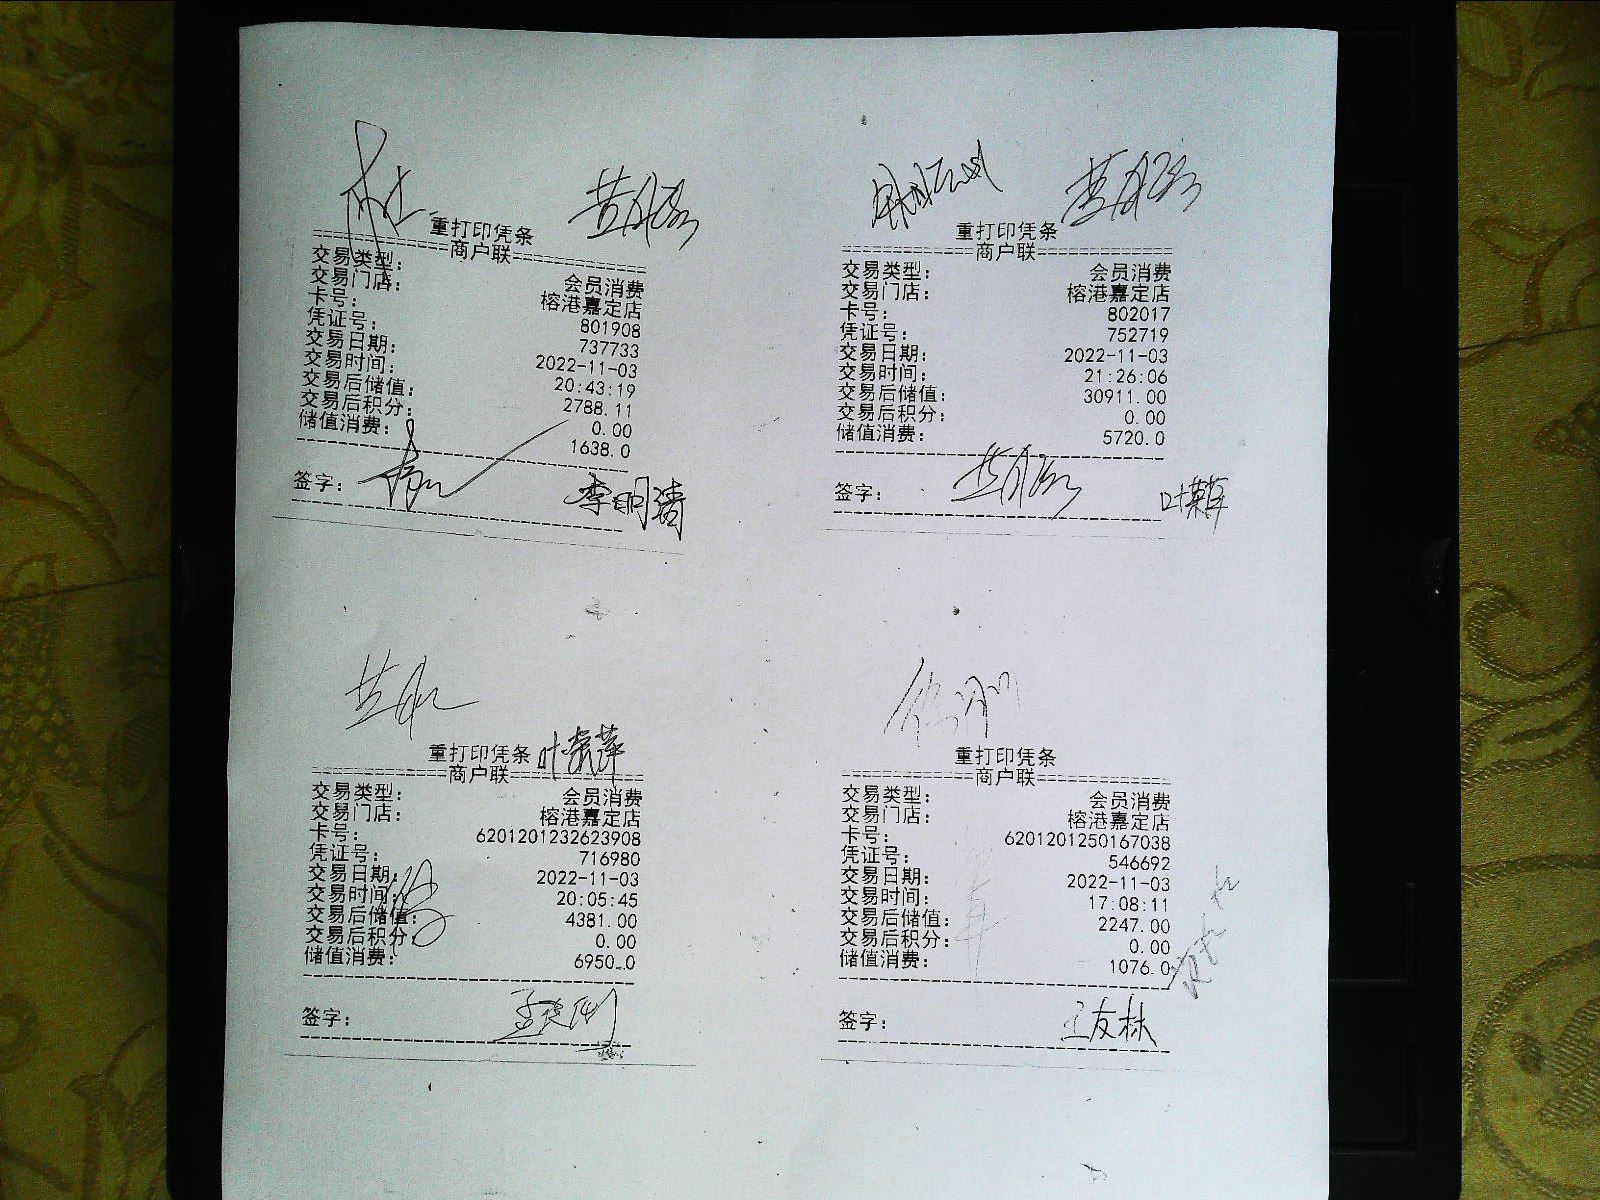 重打印凭条
商户联
交易类型: 会员消费
交易门店: 榕港嘉定店
卡号: 801908
凭证号: 737733
交易日期: 2022-11-03
交易时间: 20:43:19
交易后储值: 2788.11
交易后积分: 0.00
储值消费: 1638.0
签字: 李明清
重打印凭条
商户联
交易类型: 会员消费
交易门店: 榕港嘉定店
卡号: 802017
凭证号: 752719
交易日期: 2022-11-03
交易时间: 21:26:06
交易后储值: 30911.00
交易后积分: 0.00
储值消费: 5720.0
签字:
重打印凭条
商户联
交易类型: 会员消费
交易门店: 榕港嘉定店
卡号: 6201201232623908
凭证号: 716980
交易日期: 2022-11-03
交易时间: 20:05:45
交易后储值: 4381.00
交易后积分: 0.00
储值消费: 6950.0
签字:
重打印凭条
商户联
交易类型: 会员消费
交易门店: 榕港嘉定店
卡号: 6201201250167038
凭证号: 546692
交易日期: 2022-11-03
交易时间: 17:08:11
交易后储值: 2247.00
交易后积分: 0.00
储值消费: 1076.0
签字: 王友林